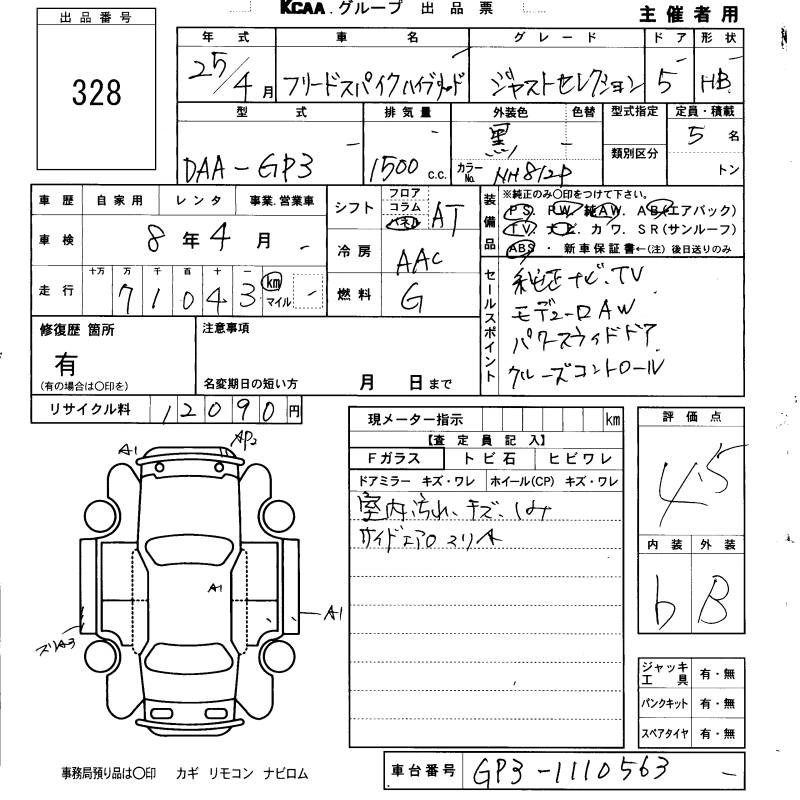 KCAA.グループ 出品票
主催者用
出品番号
328
年式 車名 グレード ドア 形状
25/4月 フリードスパイクハイブリッド ジャストセレクション 5 HB
型式 排気量 外装色 色替 型式指定 定員・積載
類別区分
DAA-GP3 1500 c.c. 黒 カラーNo. NH812P 5名
トン
車歴 自家用 レンタ 事業.営業車
車検 8年4月
走行 十万 万 千 百 十 一
71043 km マイル
シフト フロア コラム パネル AT
冷房 AAC
燃料 G
装備品
※純正のみ〇印をつけて下さい。
PS. PW. 純AW. AB(エアバック)
TV. ナビ. カワ. SR(サンルーフ)
ABS ・ 新車保証書←(注)後日送りのみ
セールスポイント
純正ナビ.TV
モデューロAW
パワースライドドア
クルーズコントロール
修復歴 箇所
有
(有の場合は〇印を)
注意事項
名変期日の短い方 月 日まで
リサイクル料 12090円
現メーター指示 km
【査定員記入】
Fガラス トビ石 ヒビワレ
ドアミラー キズ・ワレ ホイール(CP) キズ・ワレ
室内汚れ、キズ、しみ
サイドエアロスリA
評価点
4.5
内装 外装
b B
A1
AP2
A1
A1
スリA3
ジャッキ工具 有・無
パンクキット 有・無
スペアタイヤ 有・無
事務局預り品は〇印 カギ リモコン ナビロム
車台番号 GP3-1110563